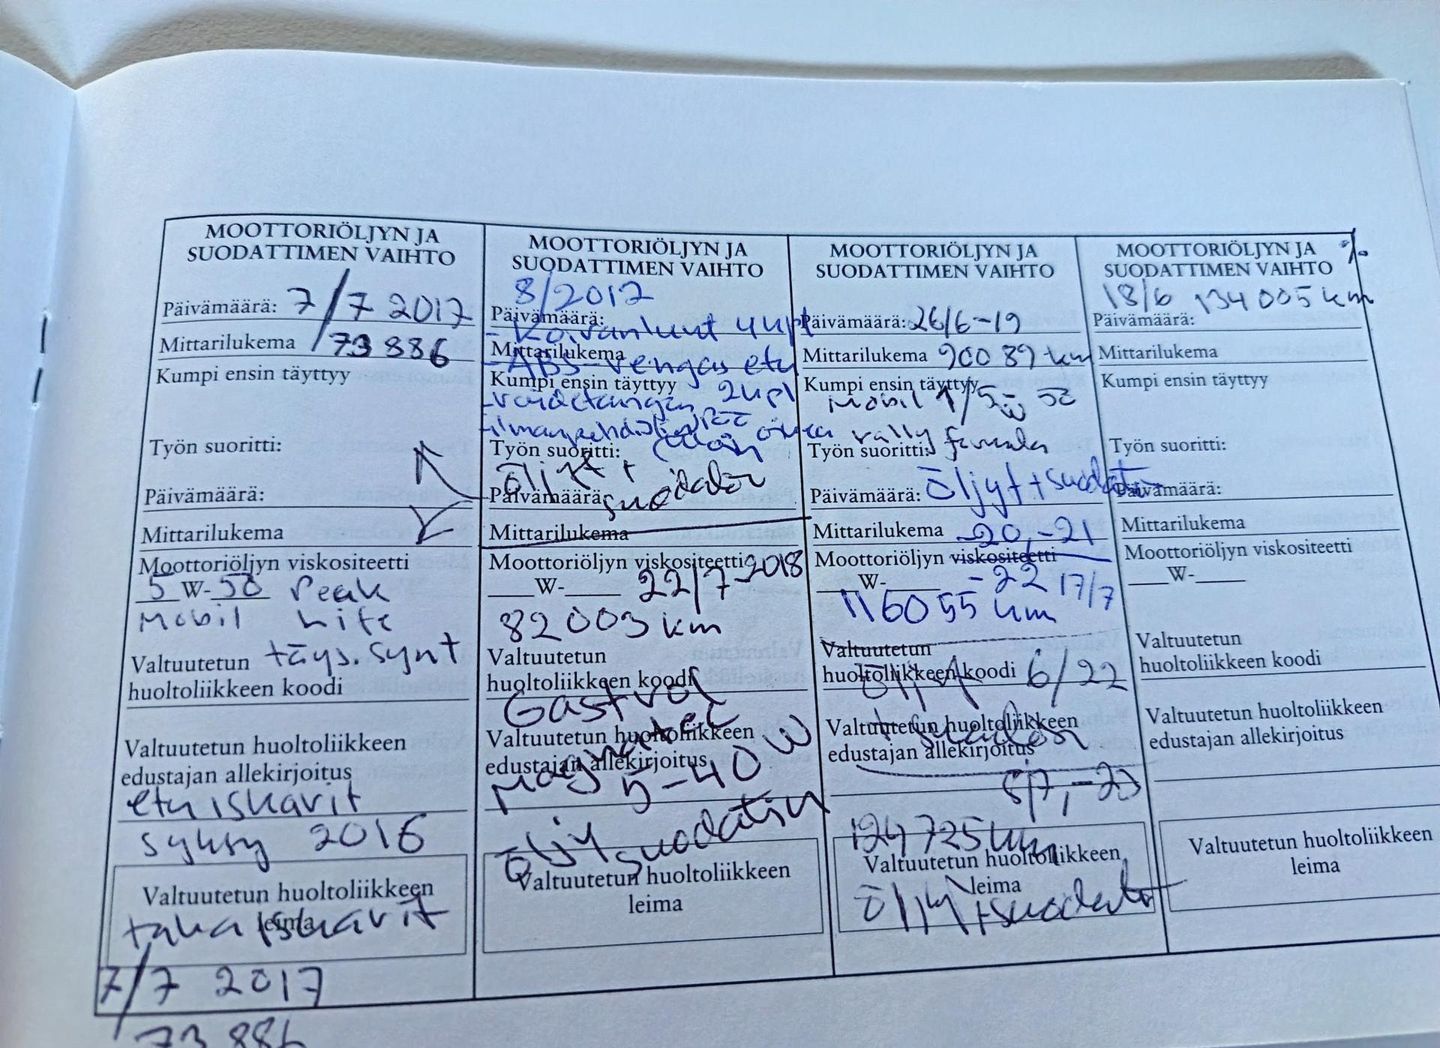 MOOTTORIÖLJYN JA
SUODATTIMEN VAIHTO
Päivämäärä: 7/7 2017
Mittarilukema 73 886
Kumpi ensin täyttyy
Työn suoritti:
Päivämäärä:
Mittarilukema
Moottoriöljyn viskositeetti
5 W- 50 Peak
Mobil Life
Valtuutetun täys.synt
huoltoliikkeen koodi
Valtuutetun huoltoliikkeen
edustajan allekirjoitus
etu iskarit
syksy 2016
Valtuutetun huoltoliikkeen
leima
taka iskarit
7/7 2017
73 886
MOOTTORIÖLJYN JA
SUODATTIMEN VAIHTO
8/2017
Päivämäärä:
- Koiranluut 4 kpl
Mittarilukema
- ABS-rengas etu
Kumpi ensin täyttyy
2 kpl
Työn suoritti:
öljyt +
Päivämäärä: suodatin
Mittarilukema
Moottoriöljyn viskositeetti
___W-____ 22/7-2018
82003 km
Valtuutetun
huoltoliikkeen koodi
Castrol
Magnatec
Valtuutetun huoltoliikkeen
edustajan allekirjoitus
5-40 W
öljy suodatin
Valtuutetun huoltoliikkeen
leima
MOOTTORIÖLJYN JA
SUODATTIMEN VAIHTO
Päivämäärä: 26/6-19
Mittarilukema 90089 km
Kumpi ensin täyttyy
Mobil 1/5W 50
rally formula
Työn suoritti:
Päivämäärä: öljyt + suodatin
Mittarilukema -20,-21
Moottoriöljyn viskositeetti
___W-____ -22 17/7
116055 km
Valtuutetun
huoltoliikkeen koodi 6/22
öljyt
+ suodatin
Valtuutetun huoltoliikkeen
edustajan allekirjoitus
8/7,-23
124725 km
Valtuutetun huoltoliikkeen
leima
öljy + suodatin
MOOTTORIÖLJYN JA %
SUODATTIMEN VAIHTO
18/6 134005 km
Päivämäärä:
Mittarilukema
Kumpi ensin täyttyy
Työn suoritti:
Päivämäärä:
Mittarilukema
Moottoriöljyn viskositeetti
___W-____
Valtuutetun
huoltoliikkeen koodi
Valtuutetun huoltoliikkeen
edustajan allekirjoitus
Valtuutetun huoltoliikkeen
leima